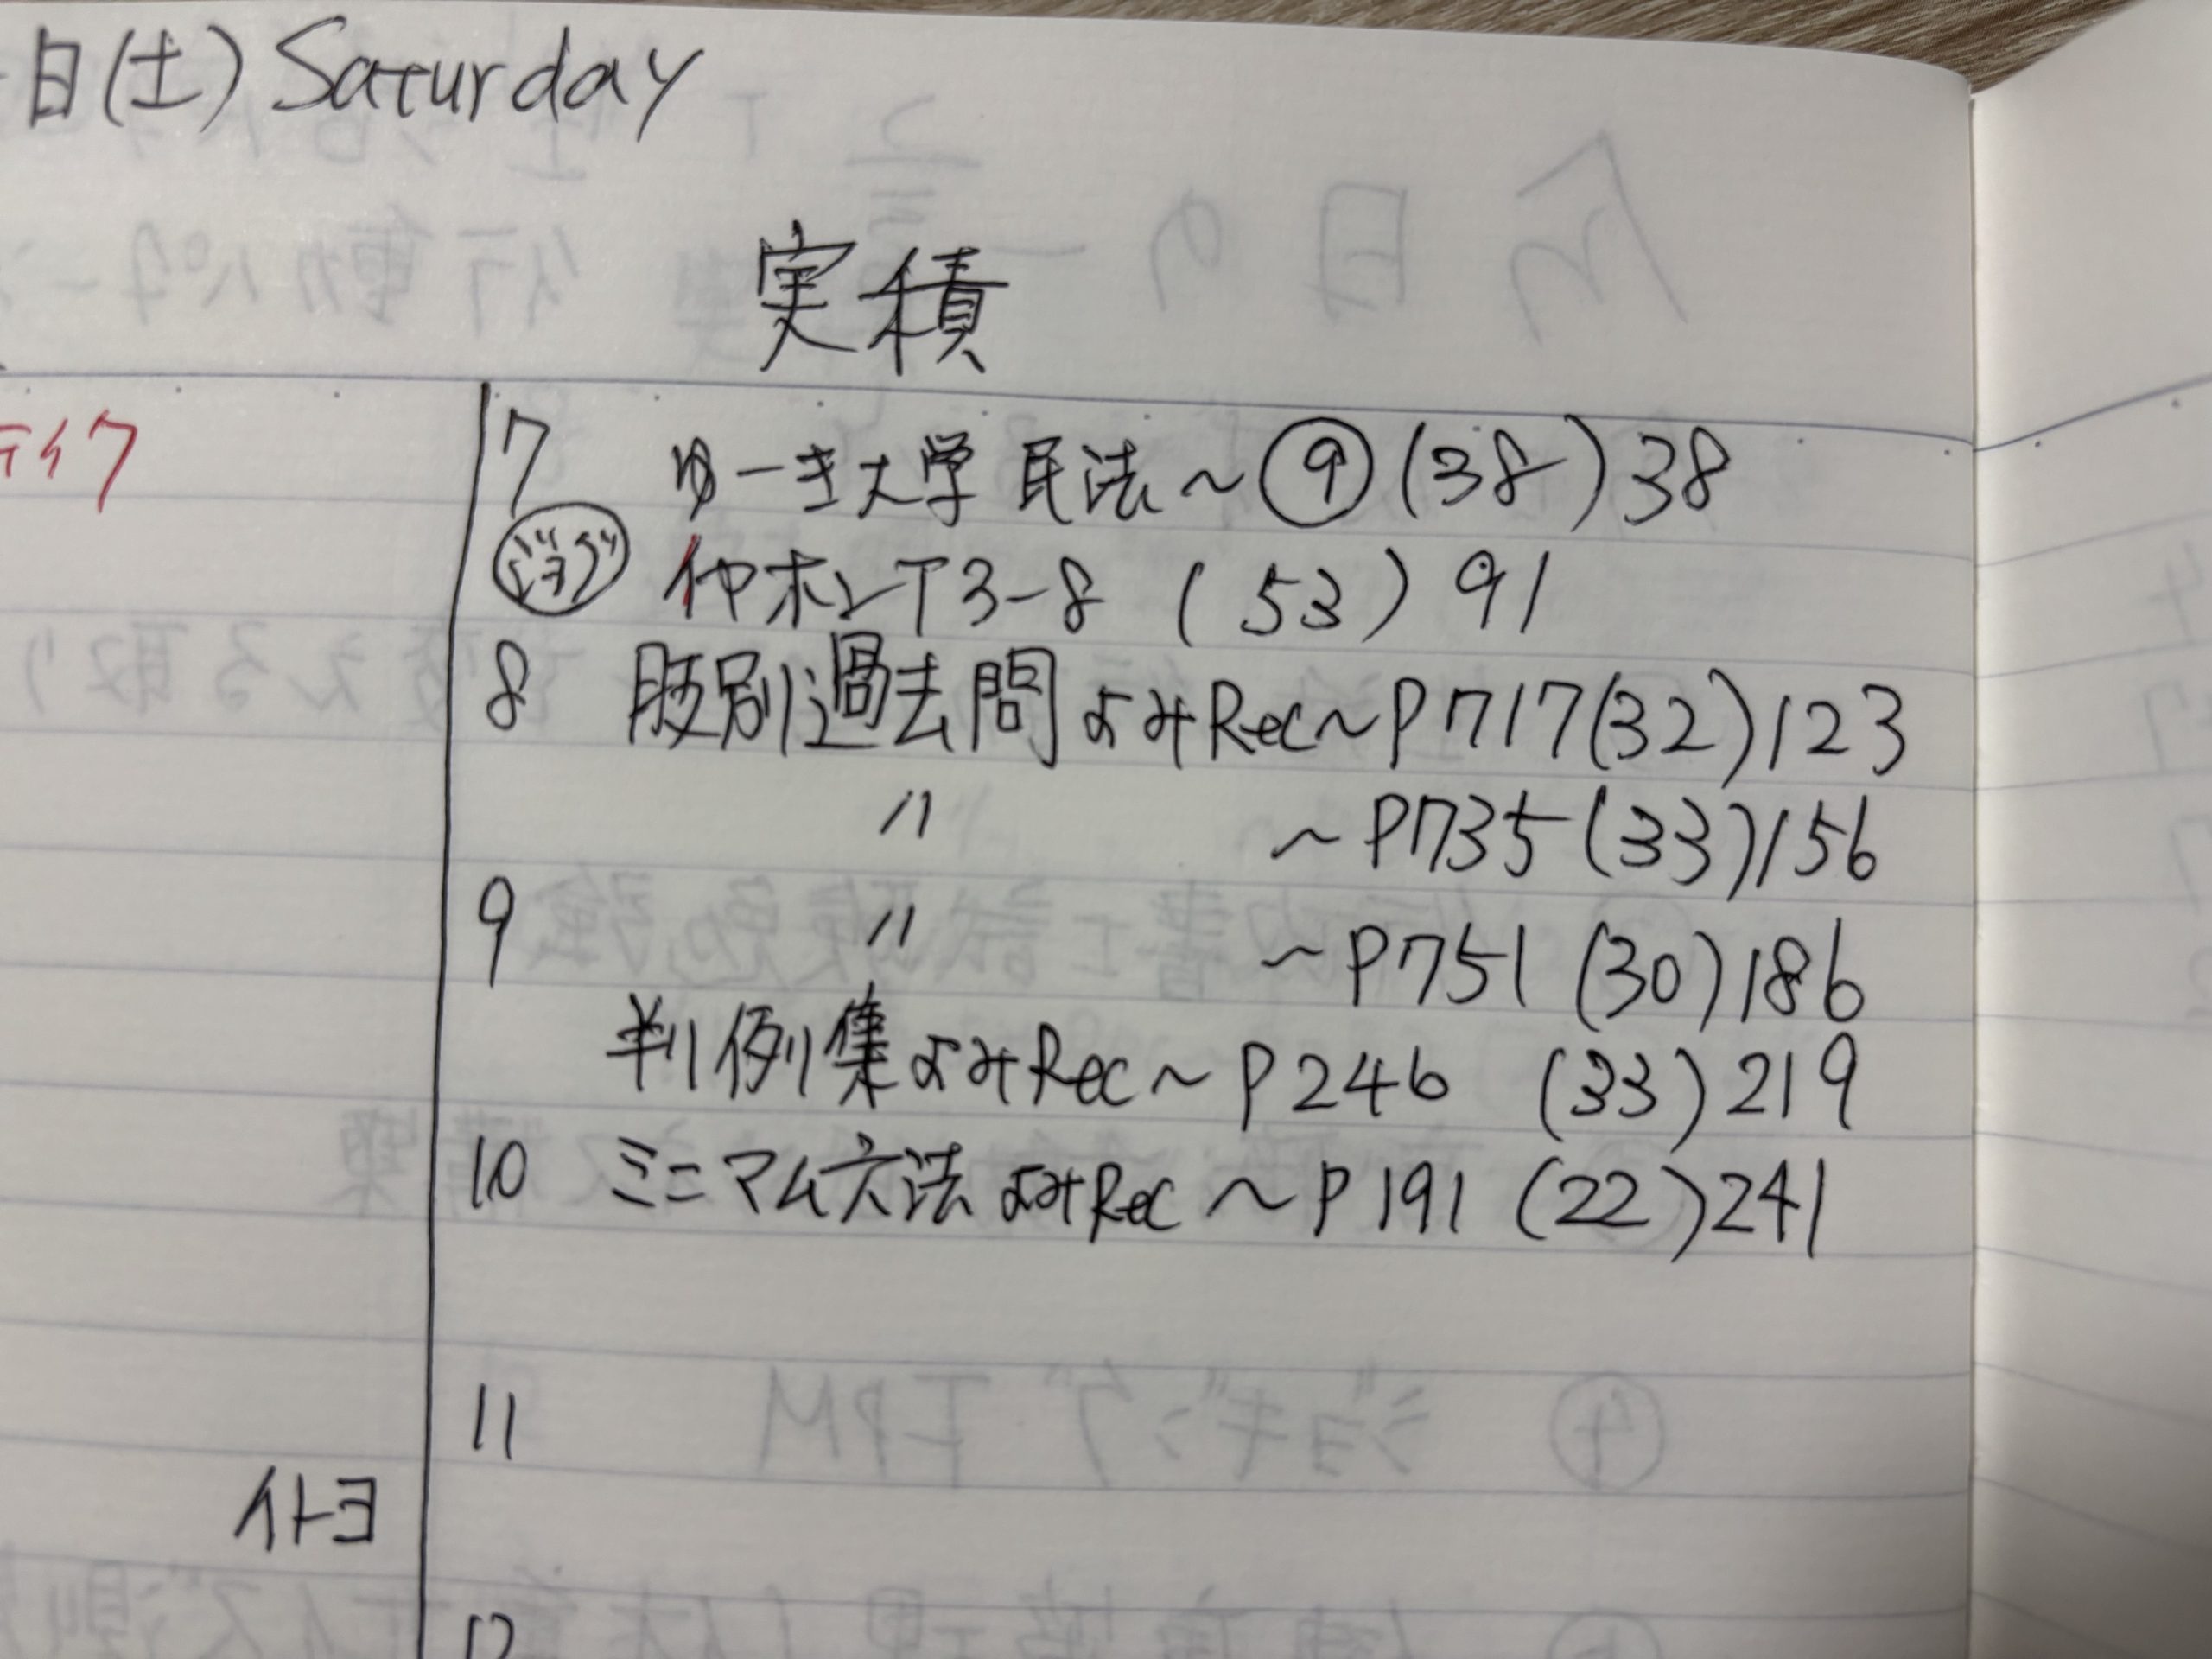 日(土) Saturday
実積
テイク
7 ゆーき大学 民法〜⑨(38)38
ジョグ イヤホンT3-8 (53) 91
8 肢別過去問よみRec〜P717(32)123
〃 〜P735(33)156
9 〃 〜P751(30)186
判例集よみRec〜P246 (33)219
10 ミニマム六法よみRec 〜P191(22)241
11
イトヨ
12